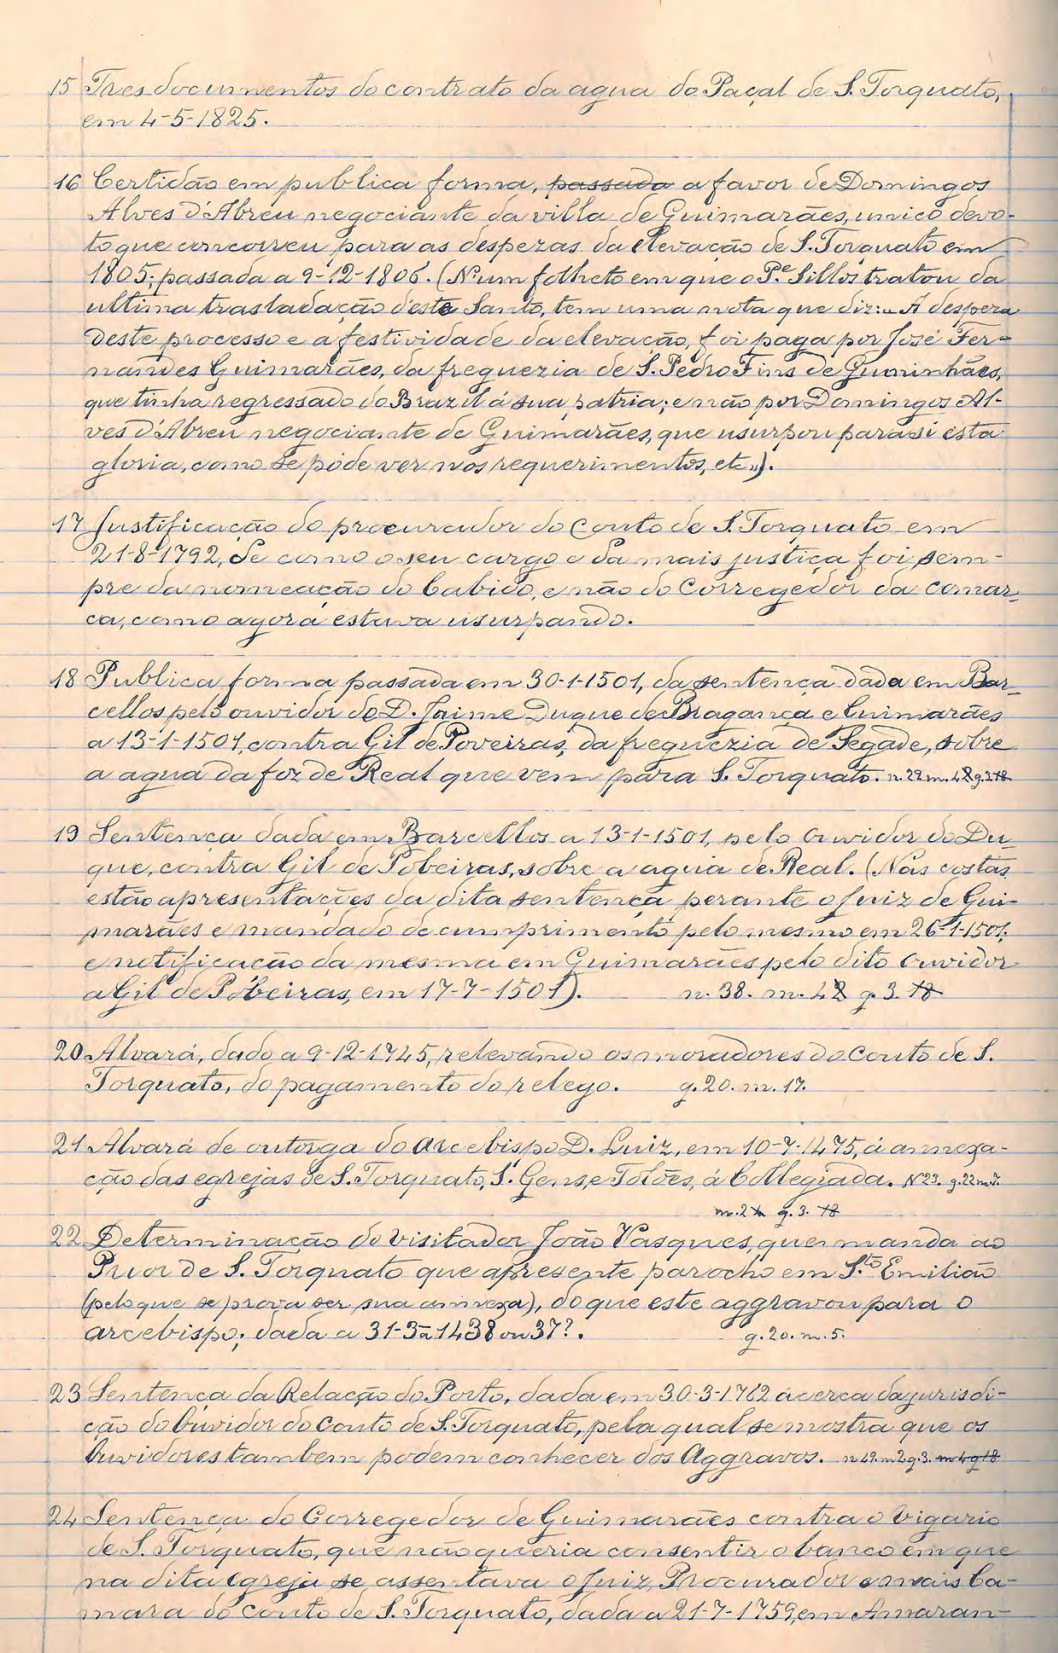 15 Tres documentos do contrato da agua do Paçal de S. Torquato,
em 4-5-1825.
16 Certidão em publica forma, passada a favor de Domingos
Alves d'Abreu negociante da villa de Guimarães, unico devo-
to que concorreu para as despezas da elevação de S. Torquato em
1805; passada a 9-12-1806. (N'um folheto em que o P.e Sillos tratou da
ultima trasladação deste Santo, tem uma nota que diz: «A despeza
deste processo e a festividade da elevação, foi paga por José Fer-
nandes Guimarães, da freguezia de S. Pedro Fins de Gominhães,
que tinha regressado do Brazil á sua patria; e não por Domingos Al-
ves d'Abreu negociante de Guimarães, que usurpou para si esta
gloria, como se póde ver nos requerimentos, etc»).
17 Justificação do procurador do Couto de S. Torquato em
21-8-1792, de como o seu cargo e da mais justiça foi sem-
pre da nomeação do Cabido, e não do Corregedor da comar-
ca, como agora estava usurpando.
18 Publica forma passada em 30-1-1501, da sentença dada em Bar-
cellos pelo ouvidor de D. Jaime Duque de Bragança e Guimarães
a 13-1-1501, contra Gil de Poveiras, da freguezia de Segade, sobre
a agua da foz de Real que vem para S. Torquato. n. 22 m. 42 g. 3 18
19 Sentença dada em Barcellos a 13-1-1501, pelo Ouvidor do Du-
que, contra Gil de Pobeiras, sobre a agua de Real. (Nas costas
estão apresentações da dita sentença perante o Juiz de Gui-
marães e mandado de cumprimento pelo mesmo em 26-1-1501,
e notificação da mesma em Guimarães pelo dito Ouvidor
a Gil de Pobeiras, em 17-7-1501). n. 38. m. 42 g. 3. 18
20 Alvará, dado a 9-12-1745, relevando os moradores do Couto de S.
Torquato, do pagamento do relego. g. 20. m. 17.
21 Alvará de outorga do Arcebispo D. Luiz, em 10-7-1475, á annexa-
ção das egrejas de S. Torquato, S. Gens, e Tolões, á Collegiada. Nº 23. g. 22 m. 7.
m. 2 g. 3. 18
22 Determinação do visitador João Vasques, que manda ao
Prior de S. Torquato que apresente parocho em S.to Emilião
(pelo que se prova ser sua annexa), do que este aggravou para o
arcebispo; dada a 31-3-1438 ou 37?. g. 20. m. 5.
23 Sentença da Relação do Porto, dada em 30-3-1762 ácerca da jurisdi-
ção do Ouvidor do Couto de S. Torquato, pela qual se mostra que os
Ouvidores tambem podem conhecer dos Aggravos. n 49. m 2 g. 3. m 4 g 18
24 Sentença do Corregedor de Guimarães contra o Vigario
de S. Torquato, que não queria consentir o banco em que
na dita Egreja se assentava o Juiz, Procurador e mais Ca-
mara do Couto de S. Torquato, dada a 21-7-1759, em Amaran-